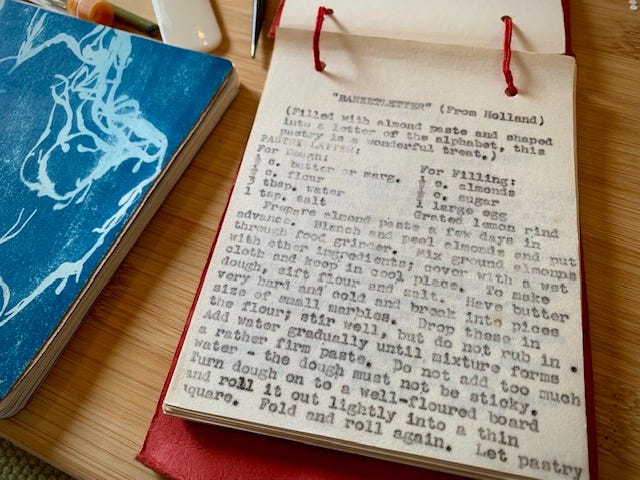 "BANKETLETTER" (From Holland)
(Filled with almond paste and shaped
into a letter of the alphabet, this
pastry is a wonderful treat.)
PASTRY LETTER:
For Dough:
c. butter or marg.
c. flour
3 tbsp. water
1 tsp. salt
For Filling:
c. almonds
c. sugar
1 large egg
Grated lemon rind
Prepare almond paste a few days in
advance. Blanch and peel almonds and put
through food grinder. Mix ground almonds
with other ingredients; cover with a wet
cloth and keep in cool place. To make
dough, sift flour and salt. Have butter
very hard and cold and break into pices
size of small marbles. Drop these in
the flour; stir well, but do not rub in.
Add water gradually until mixture forms
a rather firm paste. Do not add too much
water - the dough must not be sticky.
Turn dough on to a well-floured board
and roll it out lightly into a thin
square. Fold and roll again. Let pastry